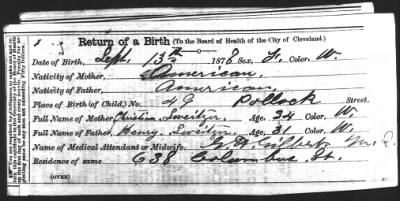 Return of a Birth (To the Board of Health of the City of Cleveland.)
Date of Birth, Sept. 13th 1878 Sex, F. Color W.
Nativity of Mother, American.
Nativity of Father, American.
Place of Birth (of Child,) No. 49 Pollock Street.
Full Name of Mother, Christina Sweitzer. Age, 24 Color, W.
Full Name of Father, Henry Sweitzer. Age, 31 Color, W.
Name of Medical Attendant or Midwife, Gilbert M.D.
Residence of same 638 Columbus St.
(OVER)